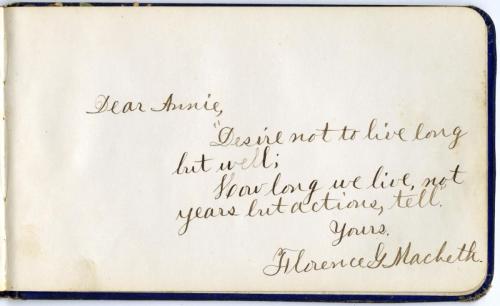 Dear Annie,
"Desire not to live long
but well;
How long we live, not
years but actions, tell.
Yours.
Florence G Macbeth.